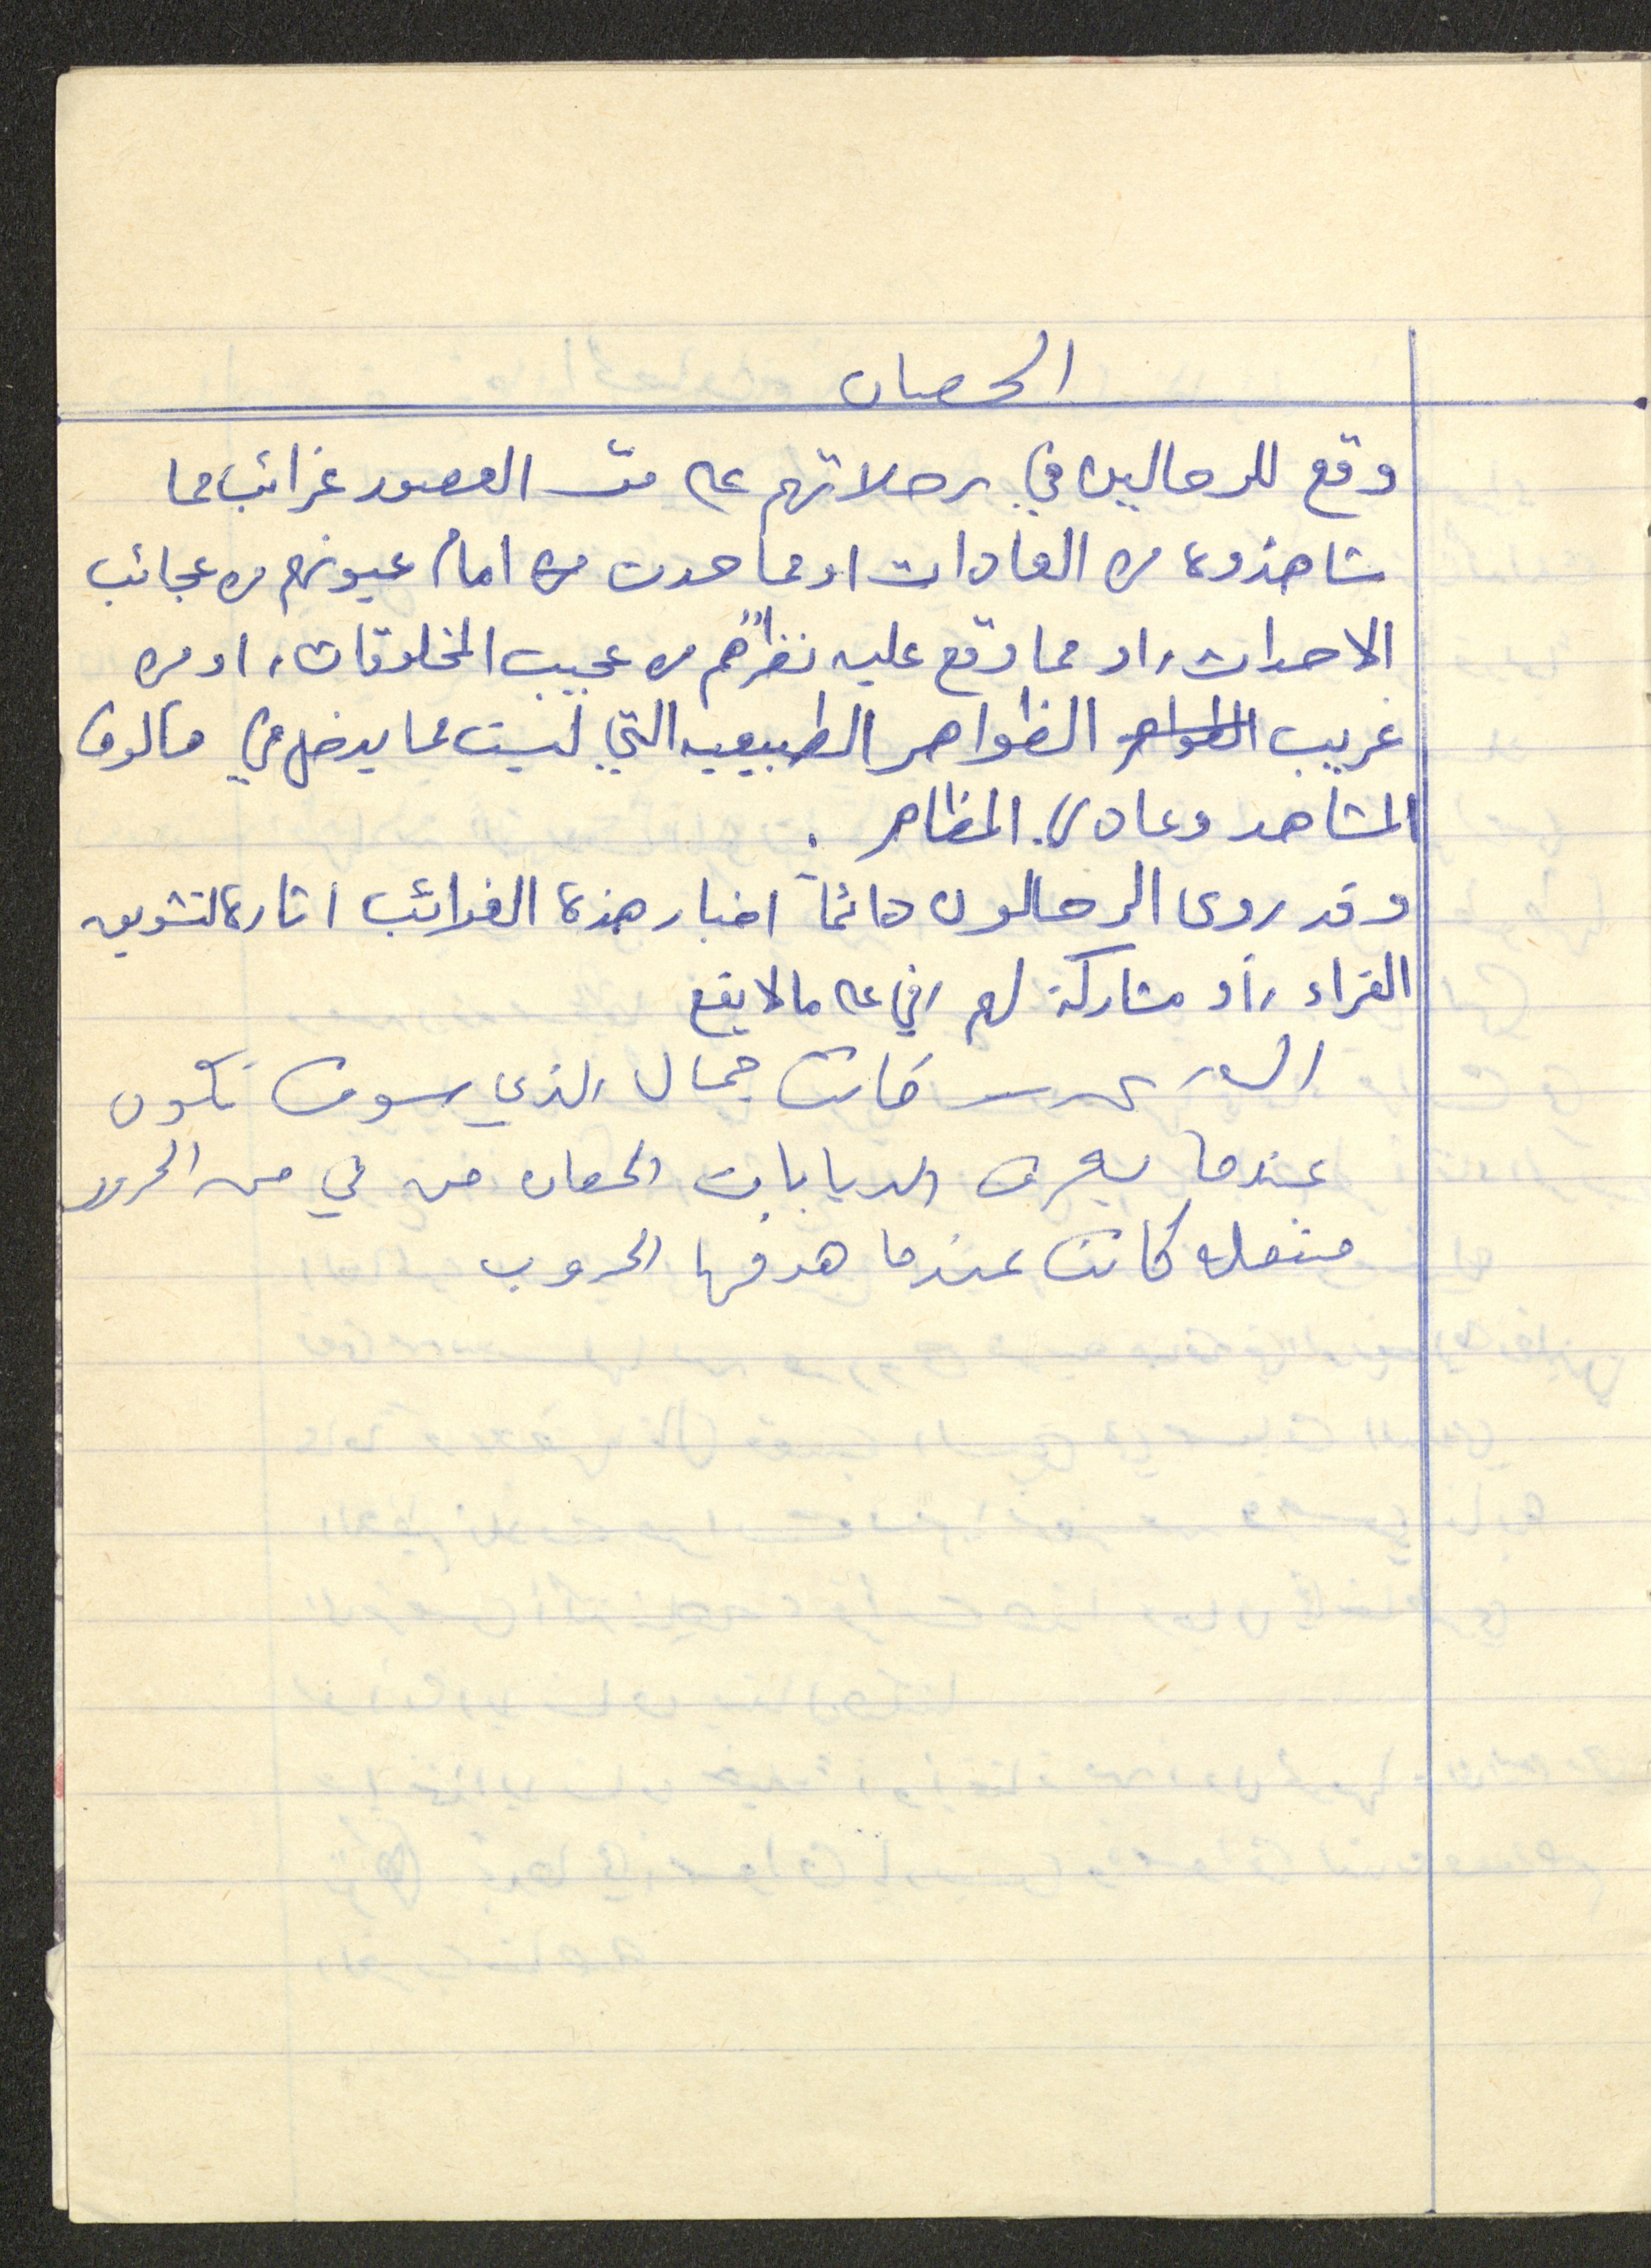 الحصان
وقع للرحالين في رحلاتهم على مر العصور غرائب مما
شاهذوه من العادات او مما حدث امام عيونهم من عجائب
الاحداث، او مما وقع عليه نظرهم من عجيب المخلوقات، او من
غريب الظواهر الظواهر الطبيعيه التي ليست مما يدخل في مألوف
المشاهد وعادي المظاهر .
وقد روى الرحالون دائماً اخبار هذه الغرائب اثارة لتشويق
القراء، أو مشاركة لهم في على ما لا يقع
كانت جمال الذي سوف تكون
عندما يعرف الدبابات الحصان من في من
كانت عندما هدفها الحروب